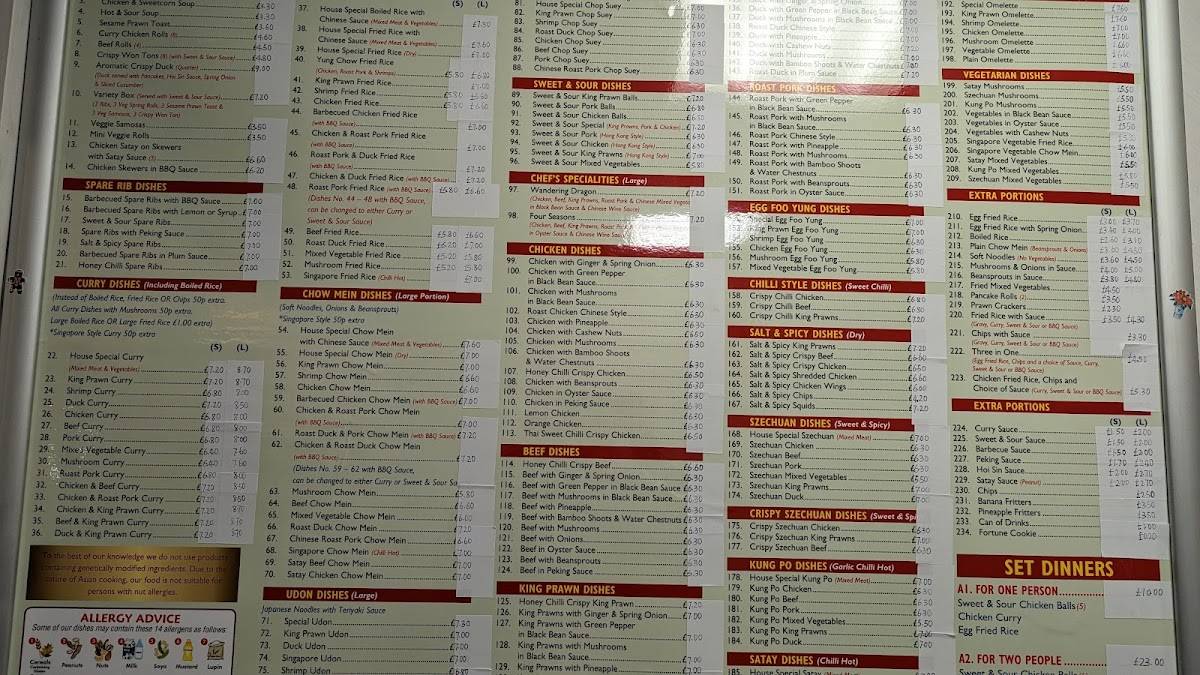 3. Chicken & Sweetcorn Soup £3.30
4. Hot & Sour Soup £3.30
5. Sesame Prawn Toast £4.60
6. Curry Chicken Rolls (8) £4.60
7. Beef Rolls (4) £3.90
8. Crispy Won Tons (8) (with Sweet & Sour Sauce) £4.80
9. Aromatic Crispy Duck (Quarter) £9.00
(Duck served with Pancakes, Hoi Sin Sauce, Spring Onion
& Sliced Cucumber)
10. Variety Box (Served with Sweet & Sour Sauce) £7.20
(2 Ribs, 3 Veg Spring Rolls, 3 Sesame Prawn Toast &
3 Crispy Won Ton)
11. Veggie Samosas £3.50
12. Mini Veggie Rolls £3.50
13. Chicken Satay on Skewers
with Satay Sauce (3) £6.60
14. Chicken Skewers in BBQ Sauce £6.20
SPARE RIB DISHES
15. Barbecued Spare Ribs with BBQ Sauce £7.00
16. Barbecued Spare Ribs with Lemon or Syrup £7.00
17. Sweet & Sour Spare Ribs £7.00
18. Spare Ribs with Peking Sauce £7.00
19. Salt & Spicy Spare Ribs £7.10
20. Barbecued Spare Ribs in Plum Sauce £7.00
21. Honey Chilli Spare Ribs £7.00
CURRY DISHES (Including Boiled Rice)
(Instead of Boiled Rice, Fried Rice OR Chips 50p extra.
All Curry Dishes with Mushrooms 50p extra.
Large Boiled Rice OR Large Fried Rice £1.00 extra)
*Singapore Style Curry 50p extra
(S) (L)
22. House Special Curry
(Mixed Meat & Vegetables) £7.20 8.70
23. King Prawn Curry £7.20 8.70
24. Shrimp Curry £6.80 8.00
25. Duck Curry £7.20 8.50
26. Chicken Curry £6.80 8.00
27. Beef Curry £6.80 8.00
28. Pork Curry £6.80 8.00
29. Mixed Vegetable Curry £6.40 7.60
30. Mushroom Curry £6.40 7.60
31. Roast Pork Curry £6.80 8.00
32. Chicken & Beef Curry £7.20 8.50
33. Chicken & Roast Pork Curry £7.20 8.50
34. Chicken & King Prawn Curry £7.20 8.70
35. Beef & King Prawn Curry £7.20 8.70
36. Duck & King Prawn Curry £7.20 8.70
To the best of our knowledge we do not use products
containing genetically modified ingredients. Due to the
nature of Asian cooking, our food is not suitable for
persons with nut allergies.
ALLERGY ADVICE
Some of our dishes may contain these 14 allergens as follows:
Cereals Peanuts Nuts Milk Soya Mustard Lupin
(S) (L)
37. House Special Boiled Rice with
Chinese Sauce (Mixed Meat & Vegetables) £7.30
38. House Special Fried Rice with
Chinese Sauce (Mixed Meat & Vegetables) £7.60
39. House Special Fried Rice (Dry) £7.00
40. Yung Chow Fried Rice
(Chicken, Roast Pork & Shrimps) £5.80 £6.60
41. King Prawn Fried Rice £7.00
42. Shrimp Fried Rice £5.80 £6.60
43. Chicken Fried Rice £5.80 £6.60
44. Barbecued Chicken Fried Rice
(with BBQ Sauce) £7.00
45. Chicken & Roast Pork Fried Rice
(with BBQ Sauce) £7.00
46. Roast Pork & Duck Fried Rice
(with BBQ Sauce) £7.20
47. Chicken & Duck Fried Rice (with BBQ Sauce) £7.20
48. Roast Pork Fried Rice (with BBQ Sauce) £5.80 £6.60
(Dishes No. 44 – 48 with BBQ Sauce,
can be changed to either Curry or
Sweet & Sour Sauce)
49. Beef Fried Rice £5.80 £6.60
50. Roast Duck Fried Rice £6.20 £7.00
51. Mixed Vegetable Fried Rice £5.20 £5.80
52. Mushroom Fried Rice £5.20 £5.80
53. Singapore Fried Rice (Chilli Hot) £7.00
CHOW MEIN DISHES (Large Portion)
(Soft Noodles, Onions & Beansprouts)
*Singapore Style 50p extra
54. House Special Chow Mein
with Chinese Sauce (Mixed Meat & Vegetables) £7.60
55. House Special Chow Mein (Dry) £7.00
56. King Prawn Chow Mein £7.00
57. Shrimp Chow Mein £6.60
58. Chicken Chow Mein £6.60
59. Barbecued Chicken Chow Mein (with BBQ Sauce) £7.00
60. Chicken & Roast Pork Chow Mein
(with BBQ Sauce) £7.00
61. Roast Duck & Pork Chow Mein (with BBQ Sauce) £7.20
62. Chicken & Roast Duck Chow Mein
(with BBQ Sauce) £7.20
(Dishes No. 59 – 62 with BBQ Sauce,
can be changed to either Curry or Sweet & Sour Sa
63. Mushroom Chow Mein £5.80
64. Beef Chow Mein £6.60
65. Mixed Vegetable Chow Mein £6.00
66. Roast Duck Chow Mein £7.20
67. Chinese Roast Pork Chow Mein £6.60
68. Singapore Chow Mein (Chilli Hot) £7.00
69. Satay Beef Chow Mein £7.00
70. Satay Chicken Chow Mein £7.00
UDON DISHES (Large)
Japanese Noodles with Teriyaki Sauce
71. Special Udon £7.30
72. King Prawn Udon £7.00
73. Duck Udon £7.00
74. Singapore Udon £7.00
75. Shrimp Udon £6.80
81. House Special Chop Suey
82. King Prawn Chop Suey
83. Shrimp Chop Suey
84. Roast Duck Chop Suey
85. Chicken Chop Suey
86. Beef Chop Suey
87. Pork Chop Suey
88. Chinese Roast Pork Chop Suey
SWEET & SOUR DISHES
89. Sweet & Sour King Prawn Balls £7.20
90. Sweet & Sour Pork Balls £6.80
91. Sweet & Sour Chicken Balls £6.80
92. Sweet & Sour Special (King Prawns, Pork & Chicken) £7.20
93. Sweet & Sour Pork (Hong Kong Style) £6.80
94. Sweet & Sour Chicken (Hong Kong Style) £6.80
95. Sweet & Sour King Prawns (Hong Kong Style) £7.00
96. Sweet & Sour Mixed Vegetables £5.80
CHEF'S SPECIALITIES (Large)
97. Wandering Dragon £7.20
(Chicken, Beef, King Prawns, Roast Pork & Chinese Mixed Veget
in Black Bean Sauce & Chinese Wine Sauce)
98. Four Seasons £7.20
(Chicken, Beef, King Prawns, Roast Pork
in Oyster Sauce & Chinese Wine Sau
CHICKEN DISHES
99. Chicken with Ginger & Spring Onion £6.30
100. Chicken with Green Pepper
in Black Bean Sauce £6.30
101. Chicken with Mushrooms
in Black Bean Sauce £6.30
102. Roast Chicken Chinese Style £6.30
103. Chicken with Pineapple £6.30
104. Chicken with Cashew Nuts £6.50
105. Chicken with Mushrooms £6.30
106. Chicken with Bamboo Shoots
& Water Chestnuts £6.30
107. Honey Chilli Crispy Chicken £6.50
108. Chicken with Beansprouts £6.30
109. Chicken in Oyster Sauce £6.30
110. Chicken in Peking Sauce £6.30
111. Lemon Chicken £6.30
112. Orange Chicken £6.30
113. Thai Sweet Chilli Crispy Chicken £6.50
BEEF DISHES
114. Honey Chilli Crispy Beef £6.60
115. Beef with Ginger & Spring Onion £6.30
116. Beef with Green Pepper in Black Bean Sauce £6.30
117. Beef with Mushrooms in Black Bean Sauce £6.30
118. Beef with Pineapple £6.30
119. Beef with Bamboo Shoots & Water Chestnuts £6.30
120. Beef with Mushrooms £6.30
121. Beef with Onions £6.30
122. Beef in Oyster Sauce £6.30
123. Beef with Beansprouts £6.30
124. Beef in Peking Sauce £6.30
KING PRAWN DISHES
125. Honey Chilli Crispy King Prawn £7.20
126. King Prawns with Ginger & Spring Onion £7.00
127. King Prawns with Green Pepper
in Black Bean Sauce £7.00
128. King Prawns with Mushrooms
in Black Bean Sauce £7.00
129. King Prawns with Pineapple £7.00
136. Duck with Green Pepper in Black Bean Sauce
137. Duck with Mushrooms in Black Bean Sauce
Duck with Pineapple
Duck with Cashew Nuts
Duck with Mushrooms
Duck with Bamboo Shoots & Water Chestnuts
Roast Duck in Plum Sauce £7.20
ROAST PORK DISHES
144. Roast Pork with Green Pepper
in Black Bean Sauce £6.30
145. Roast Pork with Mushrooms
in Black Bean Sauce £6.30
146. Roast Pork Chinese Style £6.30
147. Roast Pork with Pineapple £6.30
148. Roast Pork with Mushrooms £6.30
149. Roast Pork with Bamboo Shoots
& Water Chestnuts £6.30
150. Roast Pork with Beansprouts £6.30
151. Roast Pork in Oyster Sauce £6.30
EGG FOO YUNG DISHES
Special Egg Foo Yung £7.00
King Prawn Egg Foo Yung £7.00
Shrimp Egg Foo Yung £6.80
155. Chicken Egg Foo Yung £6.80
156. Mushroom Egg Foo Yung £6.80
157. Mixed Vegetable Egg Foo Yung £6.80
CHILLI STYLE DISHES (Sweet Chilli)
158. Crispy Chilli Chicken £6.80
159. Crispy Chilli Beef £6.80
160. Crispy Chilli King Prawns £7.20
SALT & SPICY DISHES (Dry)
161. Salt & Spicy King Prawns £7.20
162. Salt & Spicy Crispy Beef £6.60
163. Salt & Spicy Crispy Chicken £6.50
164. Salt & Spicy Shredded Chicken £6.60
165. Salt & Spicy Chicken Wings £6.60
166. Salt & Spicy Chips £4.20
167. Salt & Spicy Squids £7.20
SZECHUAN DISHES (Sweet & Spicy)
168. House Special Szechuan (Mixed Meat) £7.00
169. Szechuan Chicken £6.30
170. Szechuan Beef £6.30
171. Szechuan Pork £6.30
172. Szechuan Mixed Vegetables £5.50
173. Szechuan King Prawns £7.00
174. Szechuan Duck £7.00
CRISPY SZECHUAN DISHES (Sweet & Spi
175. Crispy Szechuan Chicken £6.30
176. Crispy Szechuan King Prawns £7.00
177. Crispy Szechuan Beef £6.30
KUNG PO DISHES (Garlic Chilli Hot)
178. House Special Kung Po (Mixed Meat) £7.00
179. Kung Po Chicken £6.30
180. Kung Po Beef £6.30
181. Kung Po Pork £6.30
182. Kung Po Mixed Vegetables £5.50
183. Kung Po King Prawns £7.00
184. Kung Po Duck £7.00
SATAY DISHES (Chilli Hot)
185. House Special Satay (Mixed Meat) £7.00
192. Special Omelette £7.60
193. King Prawn Omelette £7.60
194. Shrimp Omelette £7.00
195. Chicken Omelette £7.00
196. Mushroom Omelette £6.60
197. Vegetable Omelette £6.60
198. Plain Omelette £6.00
VEGETARIAN DISHES
199. Satay Mushrooms £5.50
200. Szechuan Mushrooms £5.50
201. Kung Po Mushrooms £5.50
202. Vegetables in Black Bean Sauce £5.50
203. Vegetables in Oyster Sauce £5.50
204. Vegetables with Cashew Nuts £5.50
205. Singapore Vegetable Fried Rice £6.00
206. Singapore Vegetable Chow Mein £6.00
207. Satay Mixed Vegetables £5.50
208. Kung Po Mixed Vegetables £5.50
209. Szechuan Mixed Vegetables £5.50
EXTRA PORTIONS
(S) (L)
210. Egg Fried Rice £3.00 £3.70
211. Egg Fried Rice with Spring Onion £3.40 £4.00
212. Boiled Rice £2.60 £3.10
213. Plain Chow Mein (Beansprouts & Onions) £3.80 £4.80
214. Soft Noodles (No Vegetables) £3.60 £4.50
215. Mushrooms & Onions in Sauce £4.00 £5.00
216. Beansprouts in Sauce £3.80 £4.80
217. Fried Mixed Vegetables £4.50
218. Pancake Rolls (2) £3.50
219. Prawn Crackers £2.30
220. Fried Rice with Sauce £3.50 £4.30
(Gravy, Curry, Sweet & Sour or BBQ Sauce)
221. Chips with Sauce £3.30
(Gravy, Curry, Sweet & Sour or BBQ Sauce)
222. Three in One £4.50
(Egg Fried Rice, Chips and a choice of Sauce, Curry,
Sweet & Sour or BBQ Sauce)
223. Chicken Fried Rice, Chips and
Choice of Sauce (Curry, Sweet & Sour or BBQ Sauce) £5.30
EXTRA PORTIONS
(S) (L)
224. Curry Sauce £1.50 £2.00
225. Sweet & Sour Sauce £1.50 £2.00
226. Barbecue Sauce £1.50 £2.00
227. Peking Sauce £1.70 £2.40
228. Hoi Sin Sauce £2.00 £2.70
229. Satay Sauce (Peanut) £2.00 £2.70
230. Chips £2.50
231. Banana Fritters £3.50
232. Pineapple Fritters £3.50
233. Can of Drinks £1.00
234. Fortune Cookie £0.20
SET DINNERS
A1. FOR ONE PERSON £10.00
Sweet & Sour Chicken Balls (5)
Chicken Curry
Egg Fried Rice
A2. FOR TWO PEOPLE £23.00
Sweet & Sour Chicken Balls